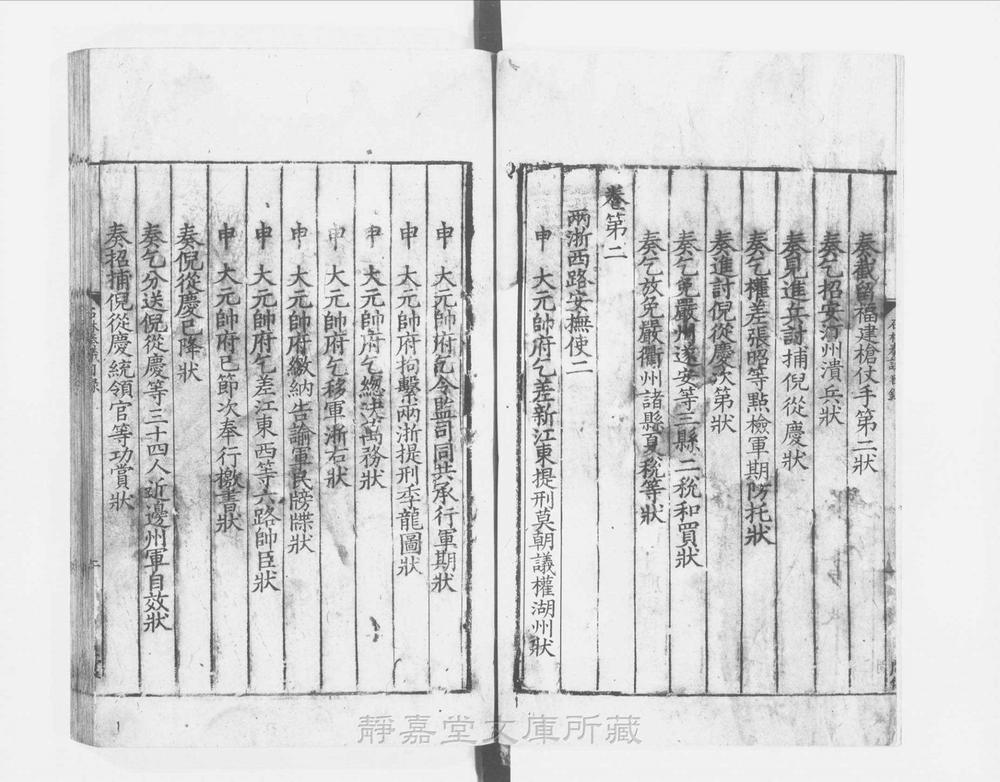 奏截留福建槍仗手第二狀
奏乞招安汀州潰兵狀
奏見進兵討捕倪從慶狀
奏乞權差張昭等點檢軍期防托狀
奏進討倪從慶次第狀
奏乞免嚴州遂安等三縣二稅和買狀
奏乞放免嚴衢州諸縣夏稅等狀
卷第二
兩浙西路安撫使二
申 大元帥府乞差新江東提刑莫朝議權湖州狀
申 大元帥府乞令監司同共承行軍期狀
申 大元帥府拘繫兩浙提刑季龍圖狀
申 大元帥府乞總決萬務狀
申 大元帥府乞移軍浙右狀
申 大元帥府繳納告諭軍民牓牒狀
申 大元帥府乞差江東西等六路帥臣狀
申 大元帥府已節次奉行檄書狀
奏倪從慶已降狀
奏乞分送倪從慶等三十四人近邊州軍自效狀
奏招捕倪從慶統領官等功賞狀
靜嘉堂文庫所藏